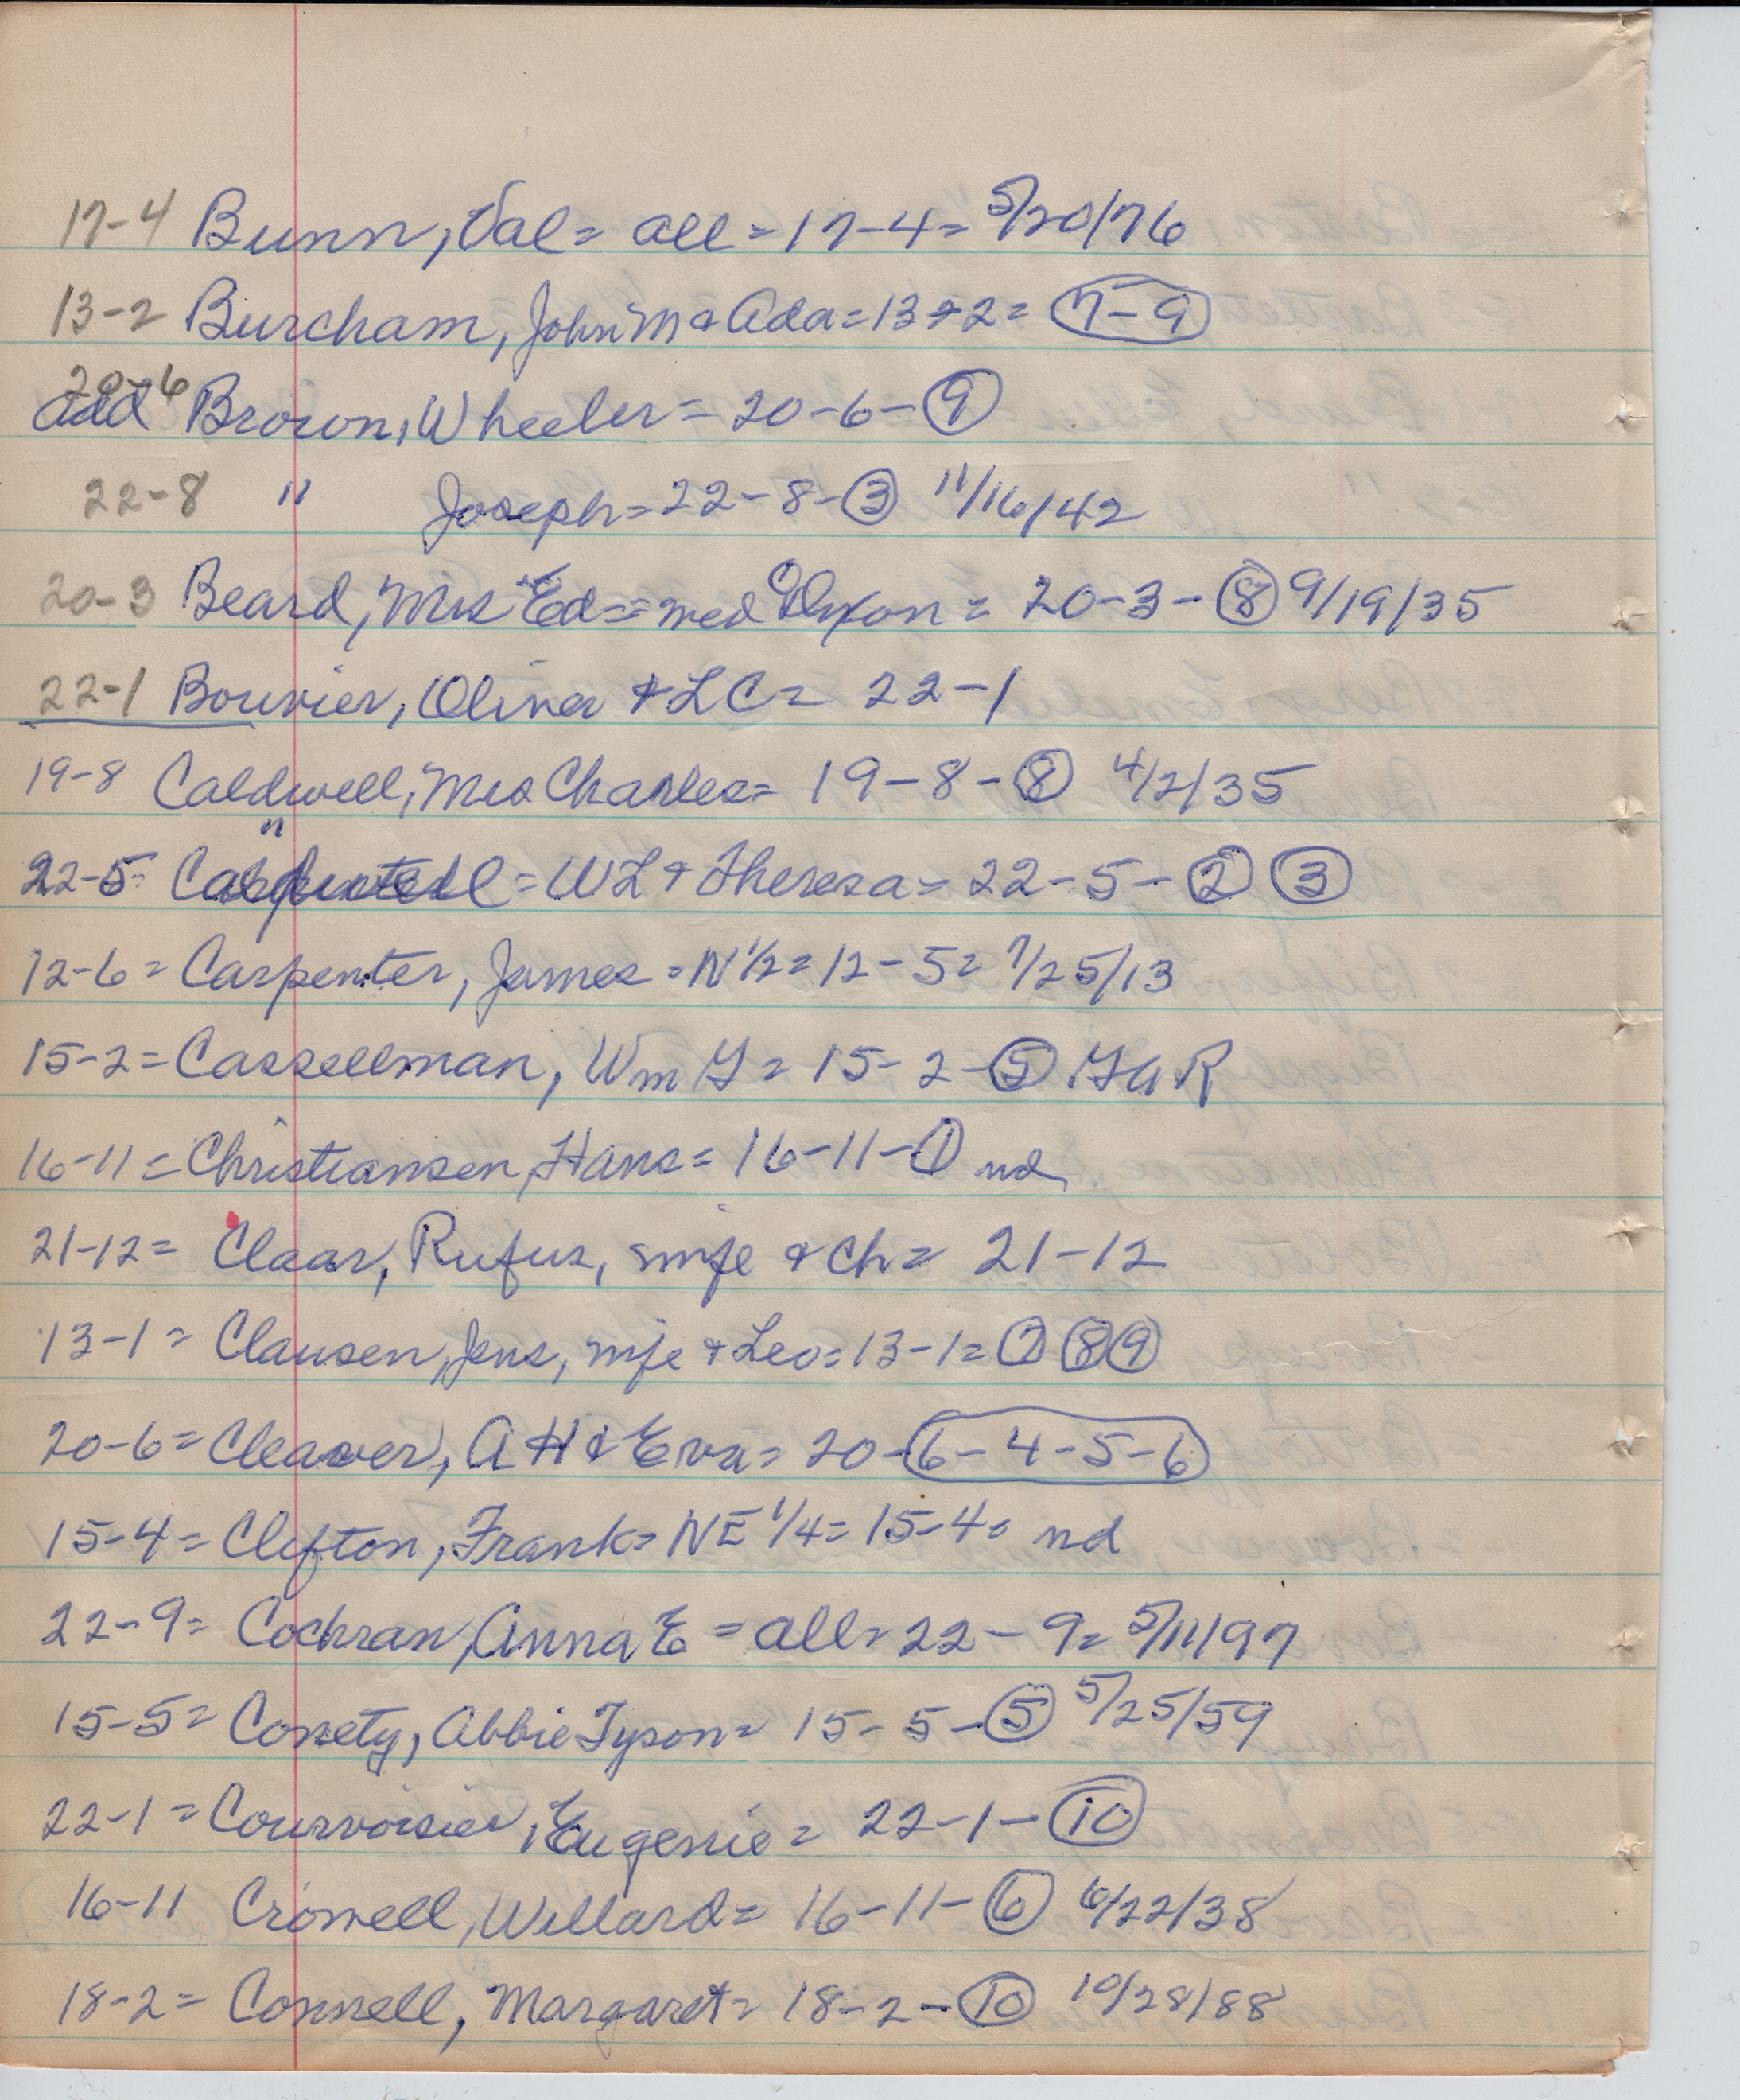 17-4 Bunn, Val = all = 17-4 = 5/20/76
13-2 Burcham, John M & Ada = 13-2 = 7-9
20-6
add Brown, Wheeler = 20-6-9
22-8 " Joseph = 22-8-3 11/16/42
20-3 Beard, Mrs Ed = = Dixon = 20-3-8 9/19/35
22-1 Bouvier, Oliver & LC = 22-1
19-8 Caldwell, Mrs Charles = 19-8-8 4/2/35
"
22-5 = = WL & Theresa = 22-5-2 3
12-6 = Carpenter, James = N 1/2 = 12-5 = 7/25/13
15-2 = Cassellman, Wm G = 15-2-5 GAR
16-11 = Christiansen, Hans = 16-11-1 nd
21-12 = Claar, Rufus, wife & ch = 21-12
13-1 = Clausen, Jens, wife & Leo = 13-1 = 7 8 9
20-6 = Cleaver, A H & Eva = 20-6-4-5-6
15-4 = Clifton, Frank = NE 1/4 = 15-4 = nd
22-9 = Cochran, Anna E = all = 22-9 = 5/11/97
15-5 = Conety, Abbie Tyson = 15-5-5 5/25/59
22-1 = Courvoisier, Eugenie = 22-1-10
16-11 Crowell, Willard = 16-11-6 6/22/38
18-2 = Connell, Margaret = 18-2-10 10/28/88